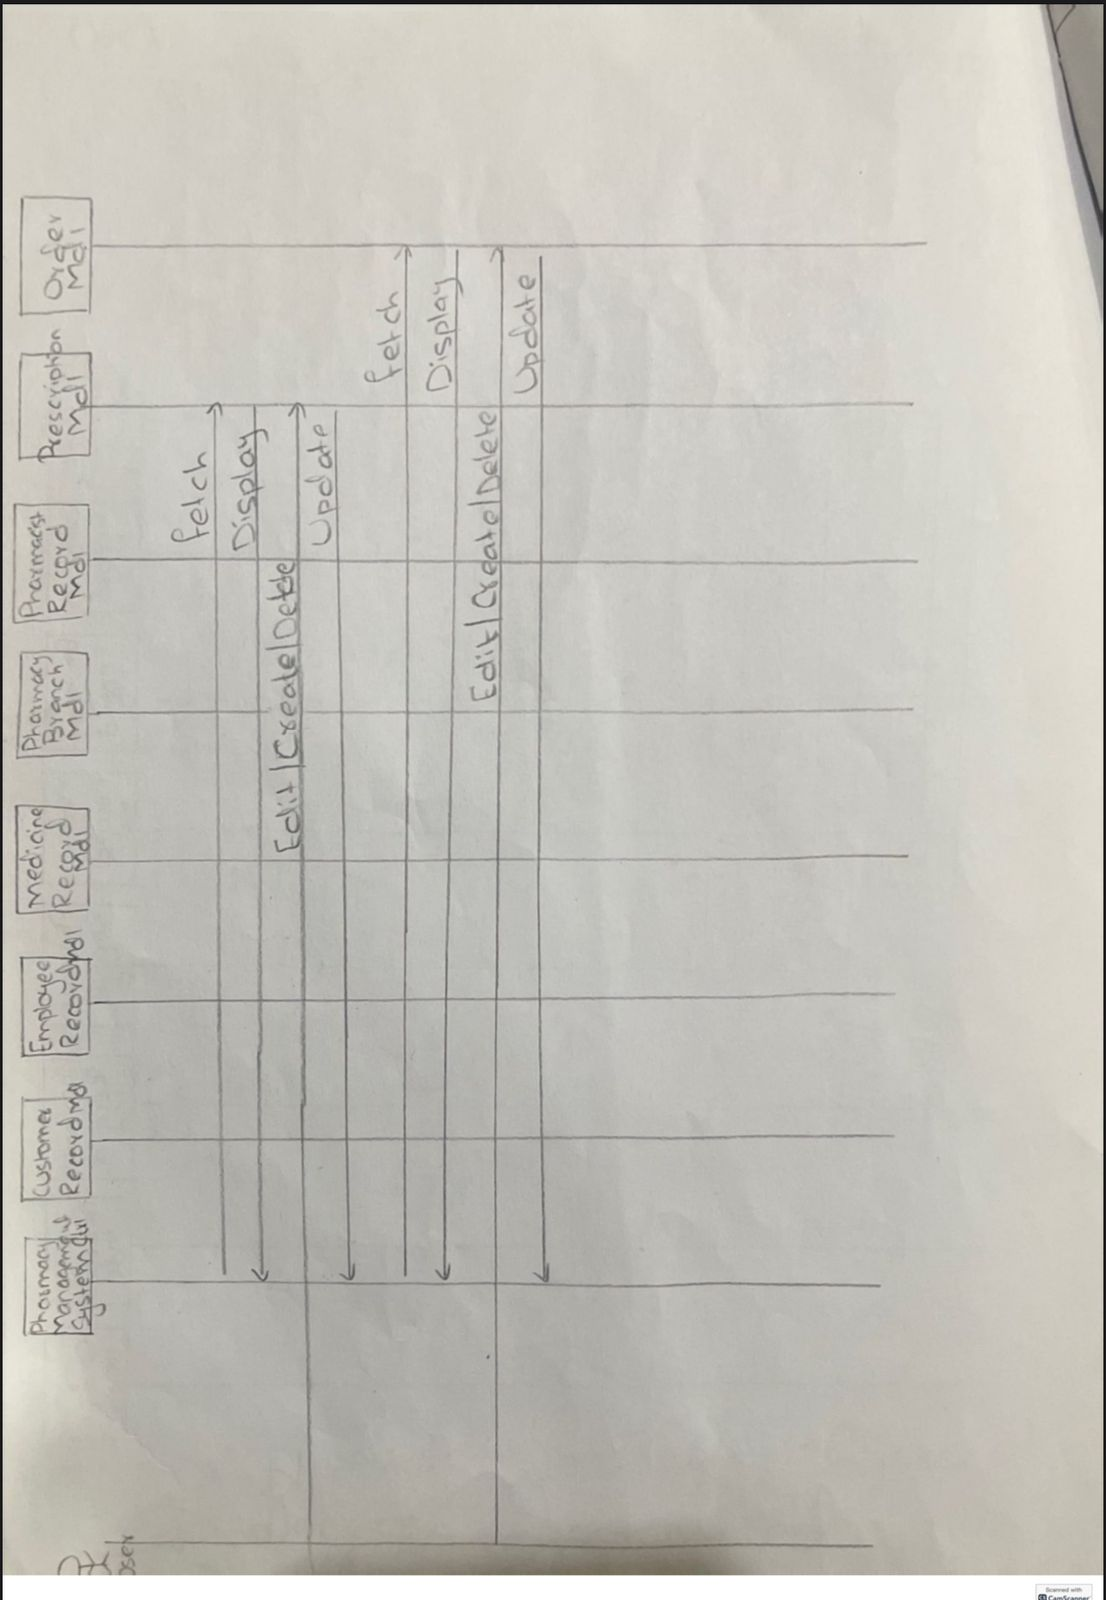 User
Pharmacy
Management
System GUI
Customer
Record Mdl
Employee
Record Mdl
Medicine
Record
Mdl
Pharmacy
Branch
Mdl
Pharmacist
Record
Mdl
Prescription
Mdl
Order
Mdl
fetch
Display
Edit|Create|Delete
Update
fetch
Display
Edit|Create|Delete
Update
Scanned with
CamScanner